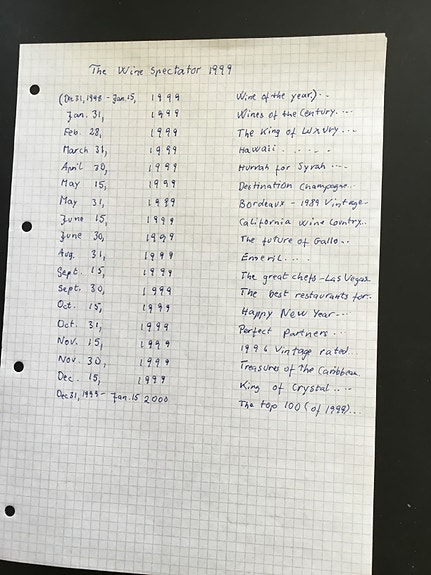 The Wine Spectator 1999
(Dec 31, 1998 - Jan. 15, 1999 Wine of the year.)...
Jan. 31, 1999 Wines of the Century....
Feb. 28, 1999 The King of Luxury....
March 31, 1999 Hawaii . . . . .
April 30, 1999 Hurrah for Syrah ....
May 15, 1999 Destination Champagne..
May 31, 1999 Bordeaux - 1989 Vintage..
June 15, 1999 California Wine Country..
June 30, 1999 The future of Gallo...
Aug. 31, 1999 Emeril....
Sept. 15, 1999 The great chefs - Las Vegas.
Sept. 30, 1999 The best restaurants for..
Oct. 15, 1999 Happy New Year...
Oct. 31, 1999 Perfect Partners...
Nov. 15, 1999 1996 Vintage rated...
Nov. 30, 1999 Treasures of The Caribbean.
Dec. 15, 1999 King of Crystal....
Dec 31, 1999 - Jan. 15 2000 The top 100 (of 1999)...